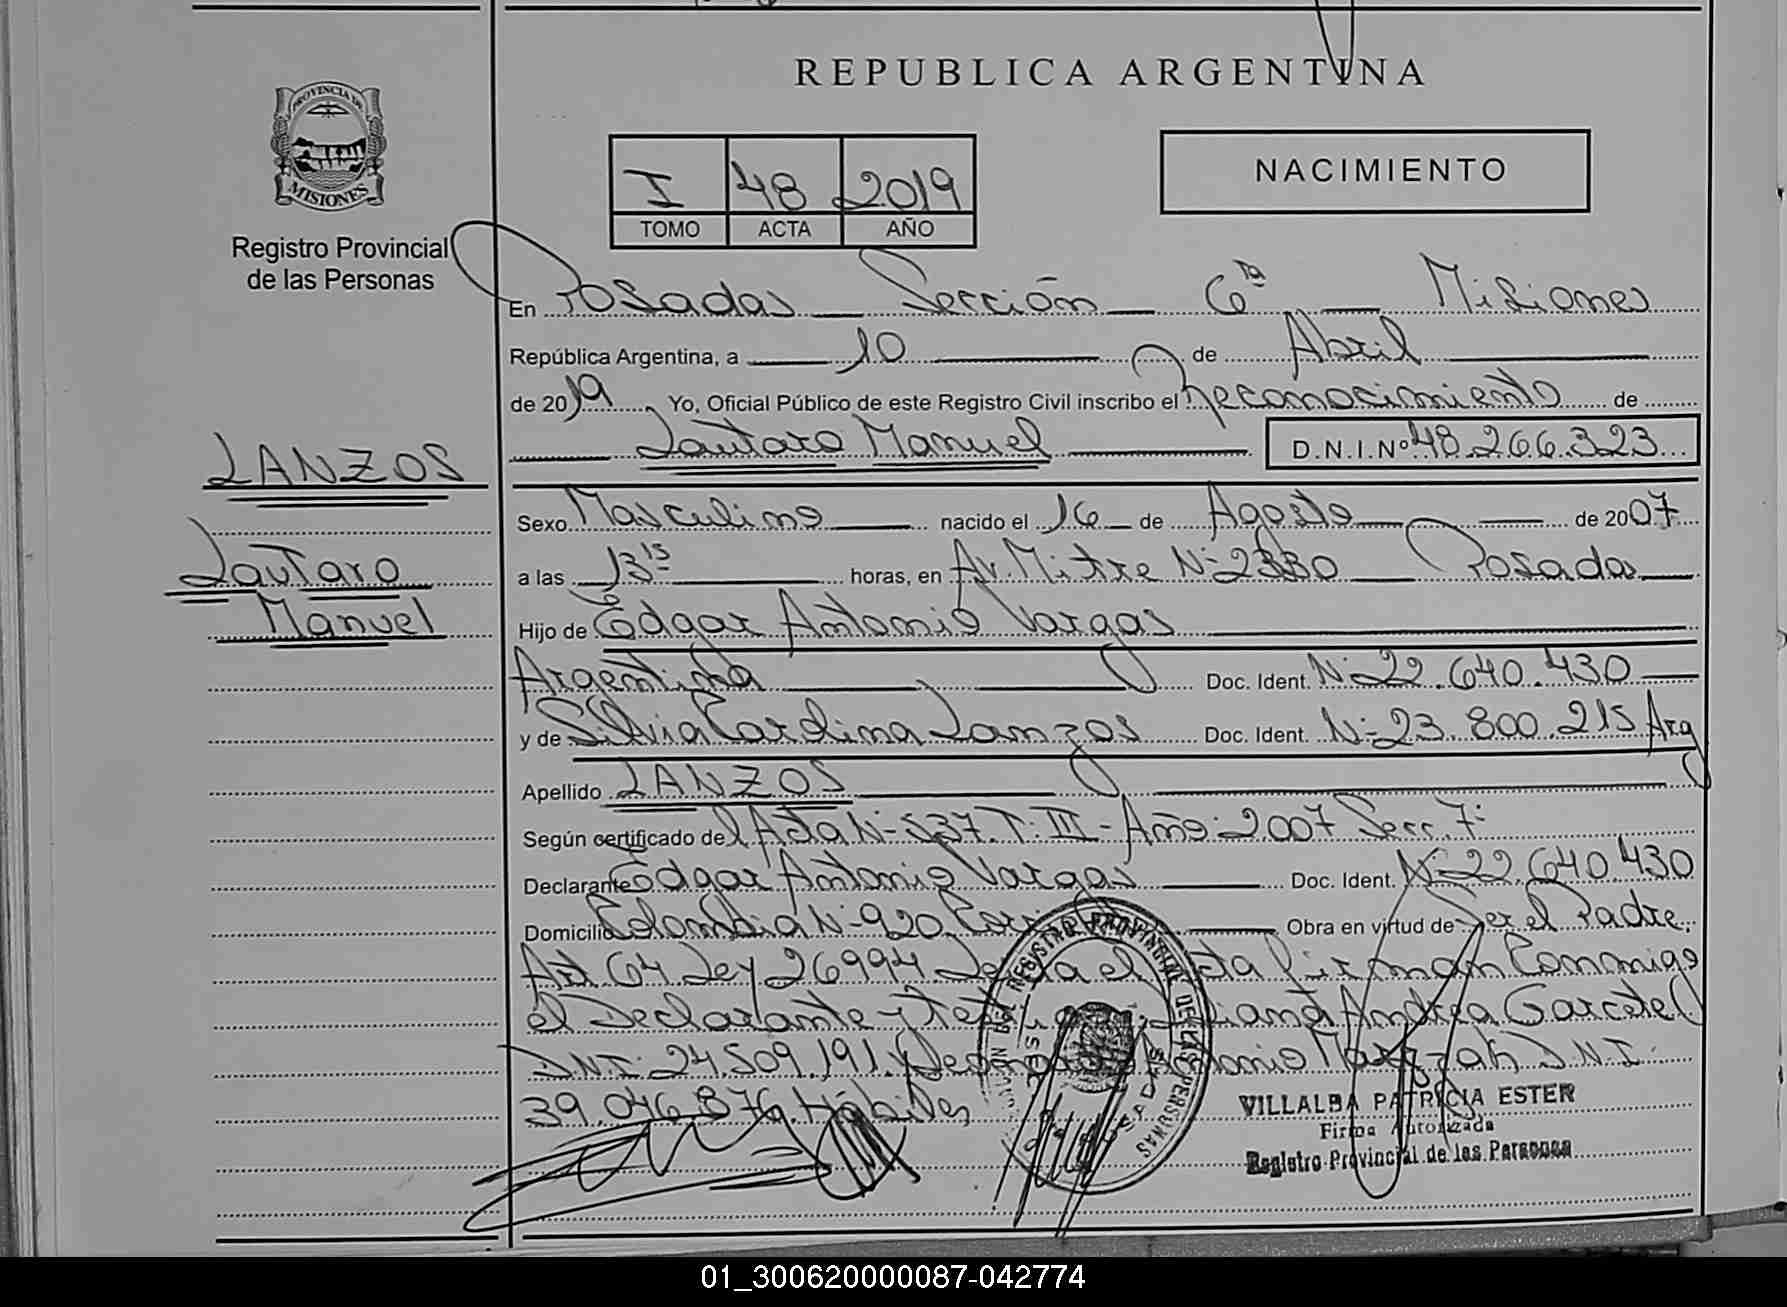 REPUBLICA ARGENTINA
PROVINCIA DE
MISIONES
Registro Provincial
de las Personas
I 48 2019
TOMO ACTA AÑO
NACIMIENTO
En Posadas Sección 6ta Misiones
República Argentina, a 10 de Abril
de 2019 Yo, Oficial Público de este Registro Civil inscribo el Reconocimiento de
Lautaro Manuel D.N.I.Nº 48.266.323
LANZOS
Lautaro
Manuel
Sexo Masculino nacido el 16 de Agosto de 2007
a las 13 15 horas, en Av. Mitre Nº 2330 Posadas
Hijo de Edgar Antonio Vargas
Argentina Doc. Ident. Nº 22.640.430
y de Silvia Carolina Lanzos Doc. Ident. Nº 23.800.215 Arg
Apellido LANZOS
Según certificado del Acta Nº 537 T: III - Año: 2007 Secc. 7º
Declarante Edgar Antonio Vargas Doc. Ident. Nº 22.640.430
Domicilio Colombia Nº 920 Obra en virtud de Ser el Padre
Art 64 Ley 26994 Leída el Acta firman Conmigo
el Declarante y Andrea Garcete
DNI: 24.509.191 y Antonio DNI:
39.046.876 Hábiles
REGISTRO PROVINCIAL DE LAS PERSONAS
POSADAS
VILLALBA PATRICIA ESTER
Firma Autorizada
Registro Provincial de las Personas
01_300620000087-042774